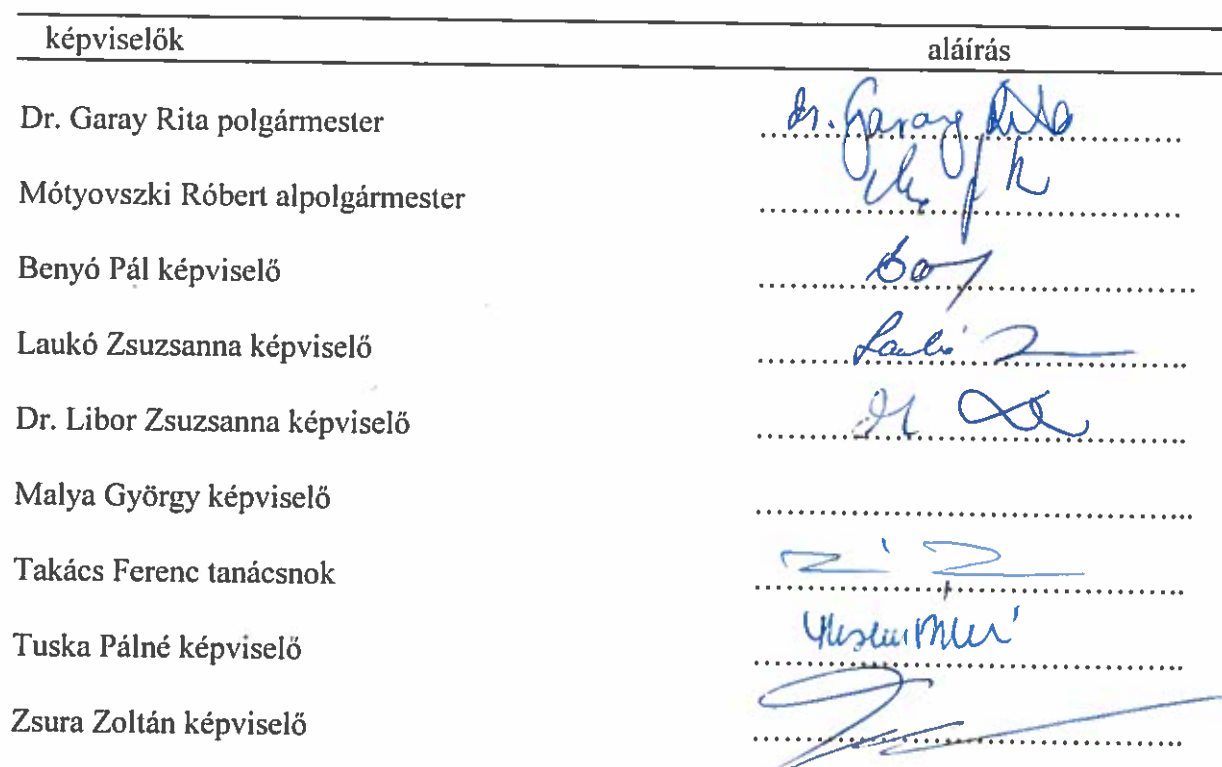 képviselők aláírás
Dr. Garay Rita polgármester dr. Garay Rita
Mótyovszki Róbert alpolgármester
Benyó Pál képviselő
Laukó Zsuzsanna képviselő Laukó Z
Dr. Libor Zsuzsanna képviselő
Malya György képviselő
Takács Ferenc tanácsnok
Tuska Pálné képviselő
Zsura Zoltán képviselő